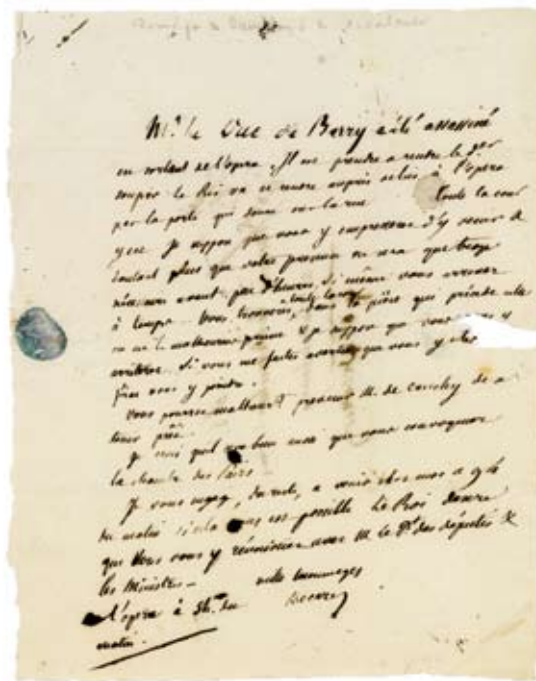 Mr. le Duc de Berry a été assassiné
en sortant de l'opera. Il ne prendre a rendre le der
soupir le Roi va se rendre auprès de lui à l'opera
par la porte qui donne sur la rue toute la cour
y est. Je suppose que vous y empresserez d'y venir d
autant plus que votre presence en sera que trop
nécessaire avant peu d'heures, si même vous arrivez
à temps. Vous trouverez, dans la pièce que précède celle
ou est le malheureux prince et je suppose que vous y
entrerez. Si vous me faites avertir que vous y etes
j'irai vous y joindre.
Vous pourrez maintenant prevenir M. de Cauchy de se
tenir prêt.
Je crois qu'il sera bien aussi que vous convoquiez
la chambre des Pairs.
Je vous engage, du reste, a venir chez moi a 9 h
du matin si cela vous est possible le Roi desire
que vous vous y réunissiez avec M. le Pt des députés &
les Ministres —
mille hommages
L'opera à 3h. du
matin.